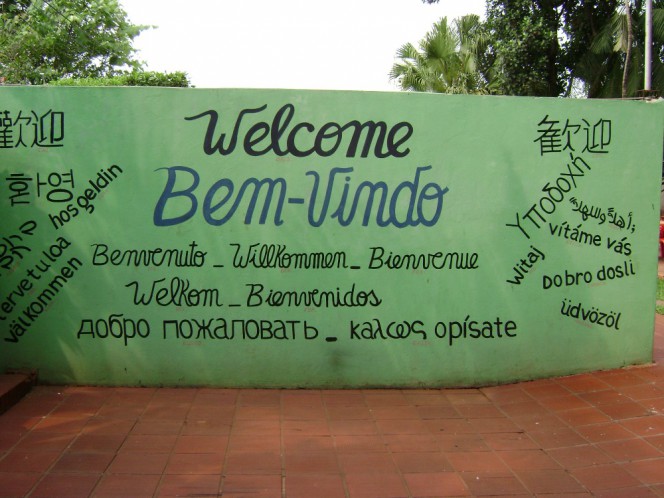 歡迎
환영
hoşgeldin
tervetuloa
välkommen
Welcome
Bem-Vindo
Benvenuto - Willkommen - Bienvenue
Welkom - Bienvenidos
добро пожаловать - καλως opísate
歡迎
Υποδοχή
Witaj
vítáme vás
Dobro dosli
üdvözöl